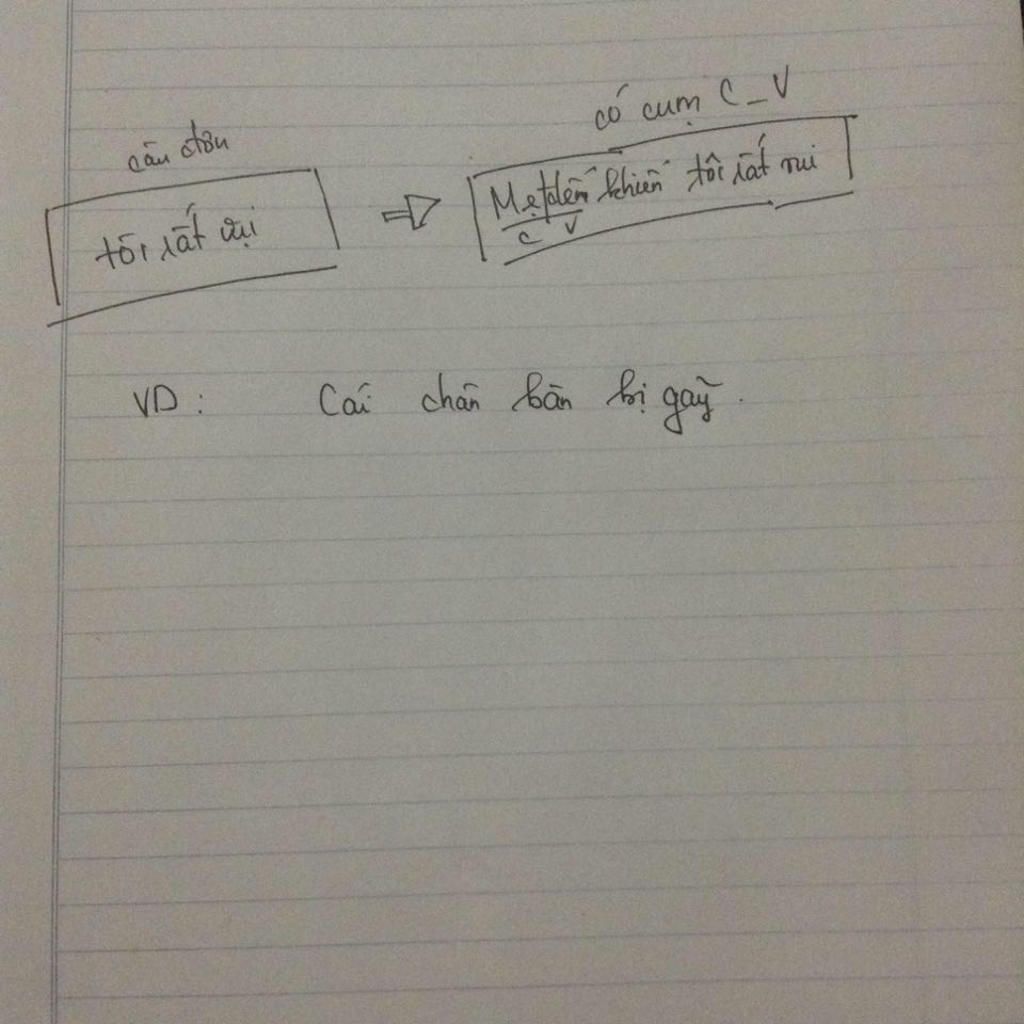 câu đơn
có cụm C_V
tôi rất vui
Mẹ đến khiến tôi rất vui
C V
VD : Cái chân bàn bị gãy.